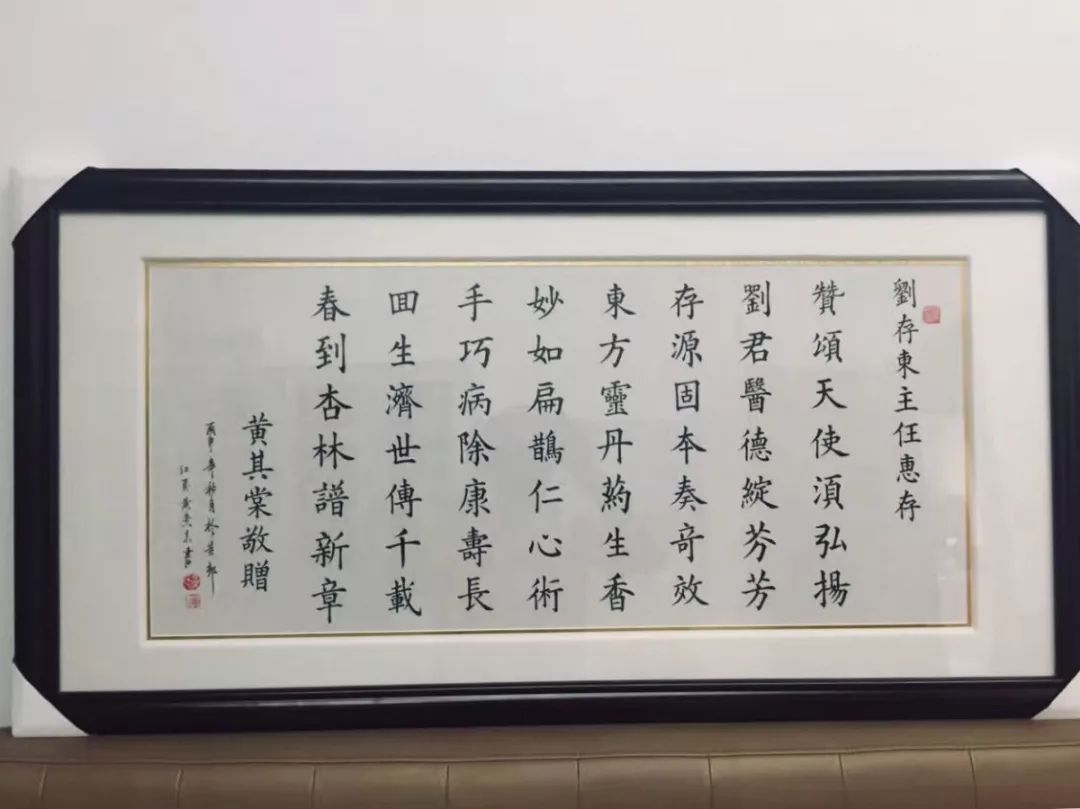 劉存東主任惠存
贊頌天使須弘揚
劉君醫德綻芬芳
存源固本奏奇效
東方靈丹葯生香
妙如扁鵲仁心術
手巧病除康壽長
回生濟世傳千載
春到杏林譜新章
黄其棠敬贈
丙申年秋月於首都